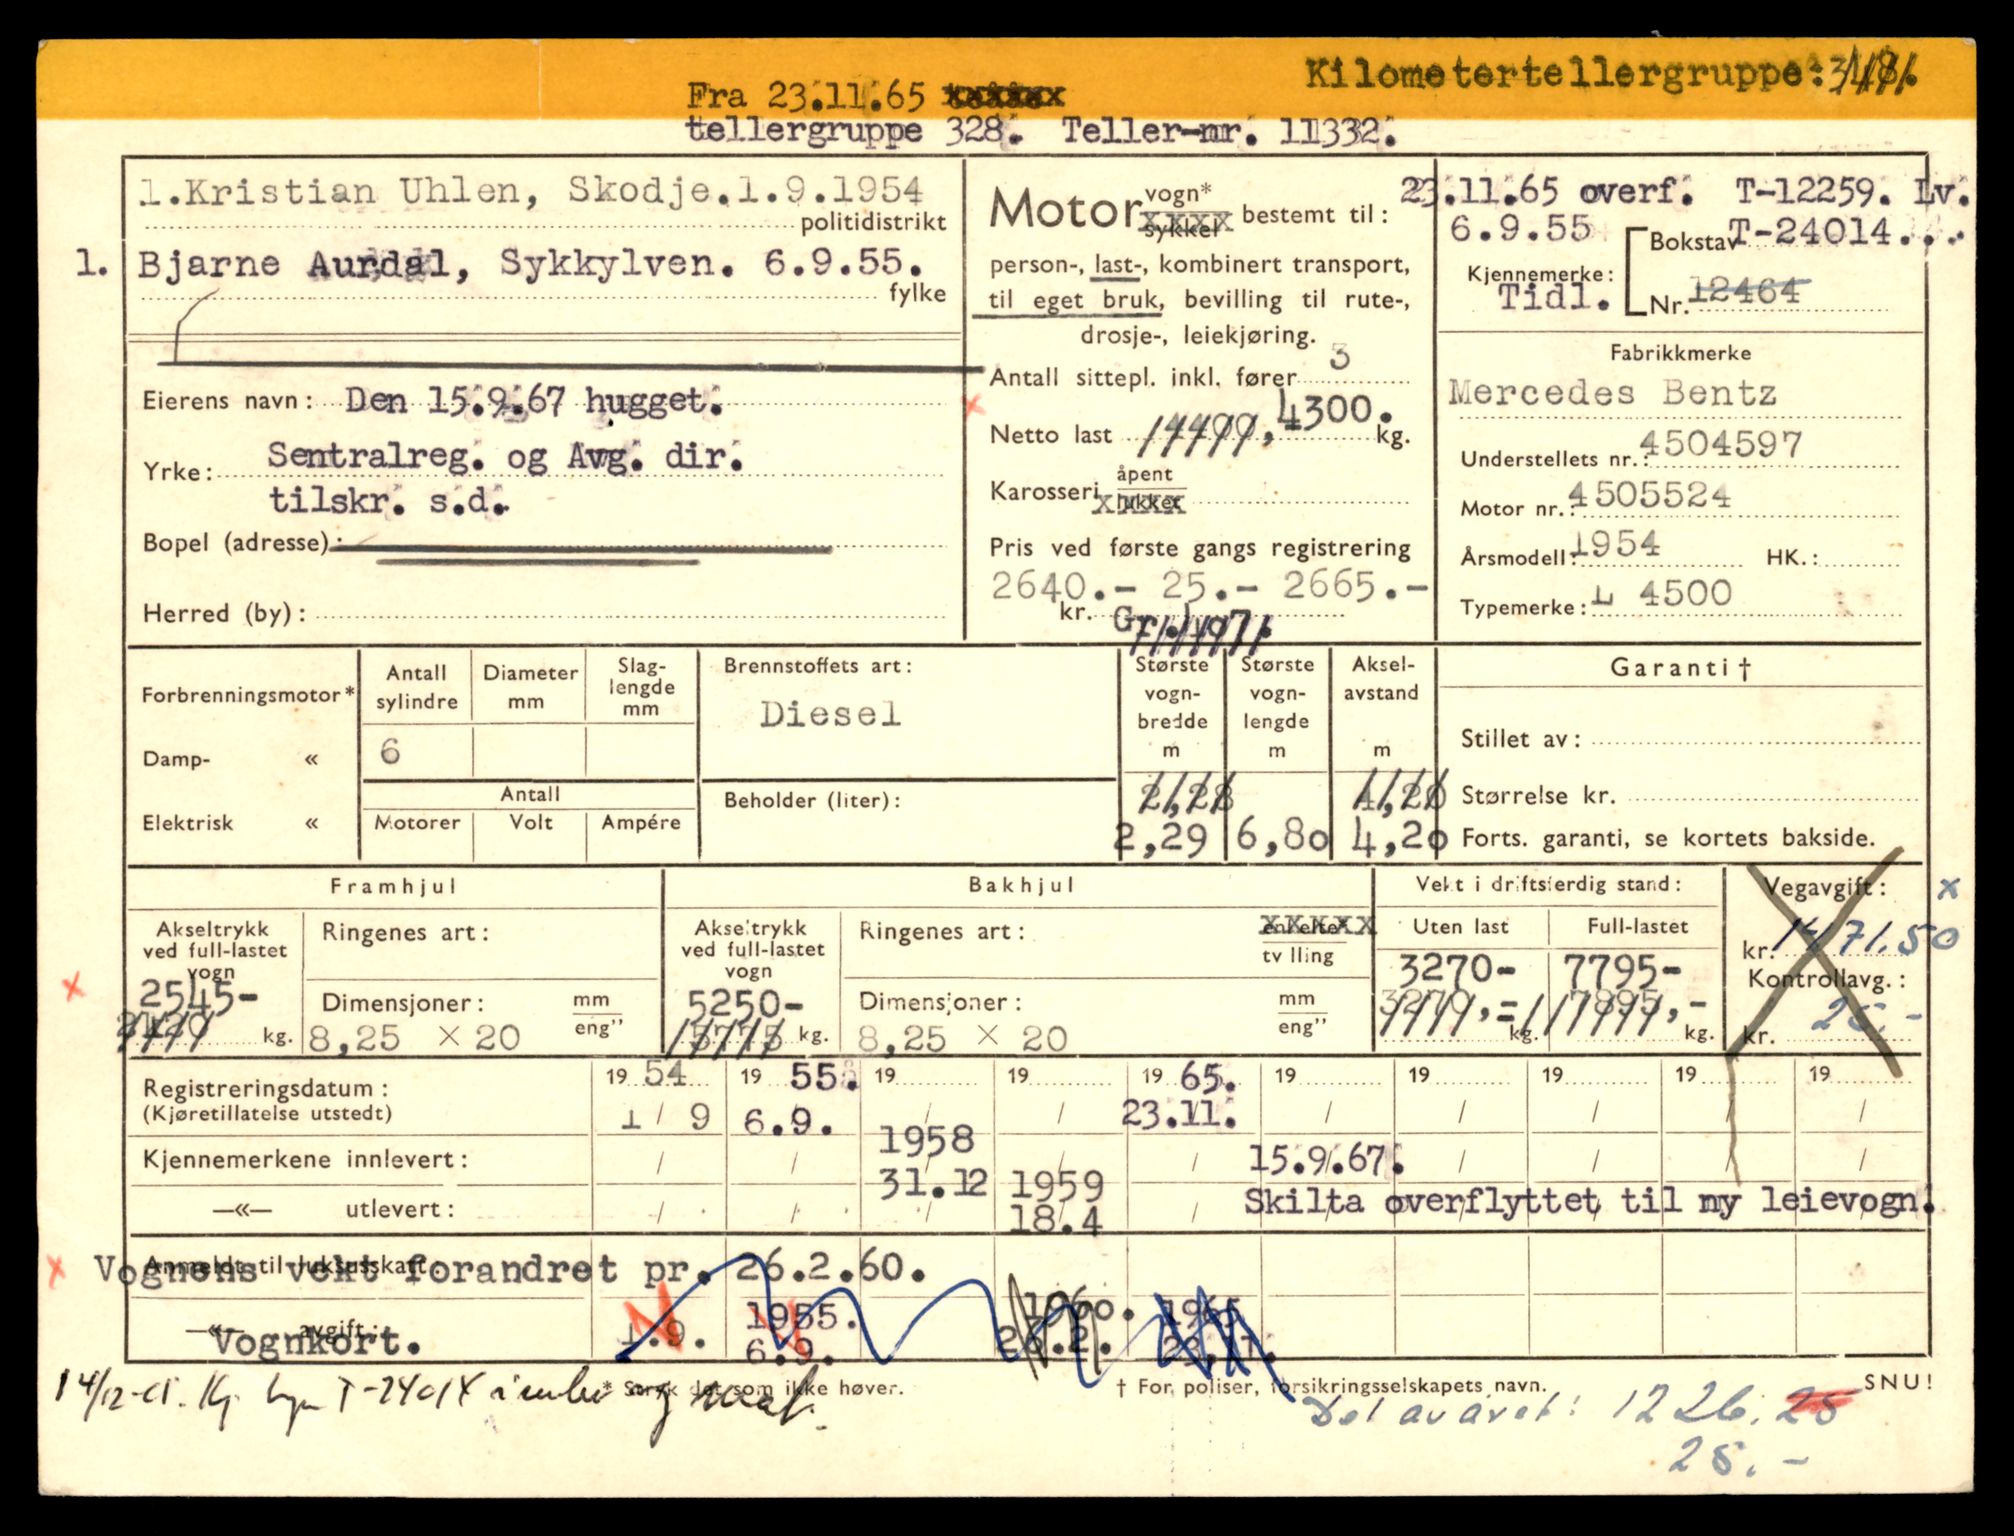 Kilometertellergruppe:
Fra 23.11.65
tellergruppe 328. Teller-nr. 11332.
1.Kristian Uhlen, Skodje.1.9.1954
politidistrikt
1. Bjarne Aurdal, Sykkylven. 6.9.55.
fylke
Eierens navn: Den 15.9.67 hugget.
Yrke: Sentralreg. og Avg. dir.
tilskr. s.d.
Bopel (adresse):
Herred (by):
Motor vogn* sykkel bestemt til:
person-, last-, kombinert transport,
til eget bruk, bevilling til rute-,
drosje-, leiekjøring.
Antall sittepl. inkl. fører 3
Netto last 4300. kg.
Karosseri åpent lukket
Pris ved første gangs registrering
2640.- 25.- 2665.-
kr. Gr.
23.11.65 overf. T-12259. Lv.
6.9.55 Bokstav T-24014...
Kjennemerke:
Tidl. Nr. 12464
Fabrikkmerke
Mercedes Bentz
Understellets nr.: 4504597
Motor nr.: 4505524
Årsmodell: 1954 HK.:
Typemerke: L 4500
Forbrenningsmotor*
Damp- «
Elektrisk «
Antall sylindre
Diameter mm
Slag-lengde mm
6
Antall
Motorer Volt Ampére
Brennstoffets art:
Diesel
Beholder (liter):
Største vogn-bredde m
Største vogn-lengde m
Aksel-avstand m
2,28 4,20
2,29 6,80 4,20
Garanti †
Stillet av:
Størrelse kr.
Forts. garanti, se kortets bakside.
Framhjul
Akseltrykk
ved full-lastet
vogn
2545-
kg.
Ringenes art:
Dimensjoner: mm eng"
8,25 × 20
Bakhjul
Akseltrykk
ved full-lastet
vogn
5250-
5775 kg.
Ringenes art: enkelte
tvilling
Dimensjoner: mm eng"
8,25 × 20
Vekt i driftsferdig stand:
Uten last Full-lastet
3270- 7795-
kg. kg.
Vegavgift: x
kr. 1471.50
Kontrollavg.:
kr. 25.-
Registreringsdatum: 19 54 19 55. 19 19 19 65. 19 19 19 19 19
(Kjøretillatelse utstedt) 1 / 9 6.9. 23.11.
Kjennemerkene innlevert: 1958 31.12 15.9.67.
—«— utlevert: 1959 18.4 Skilta overflyttet til ny leievogn.
Anmeldt til luksusskatt:
Vognens vekt forandret pr. 26.2.60.
—«— avgift:
Vognkort. 1.9. 1955. 6.9. 1960. 26.2. 1965 23.11.
* Stryk det som ikke høver.
† For poliser, forsikringsselskapets navn.
SNU!
T-24014
Del av året: 1226.25
25.-